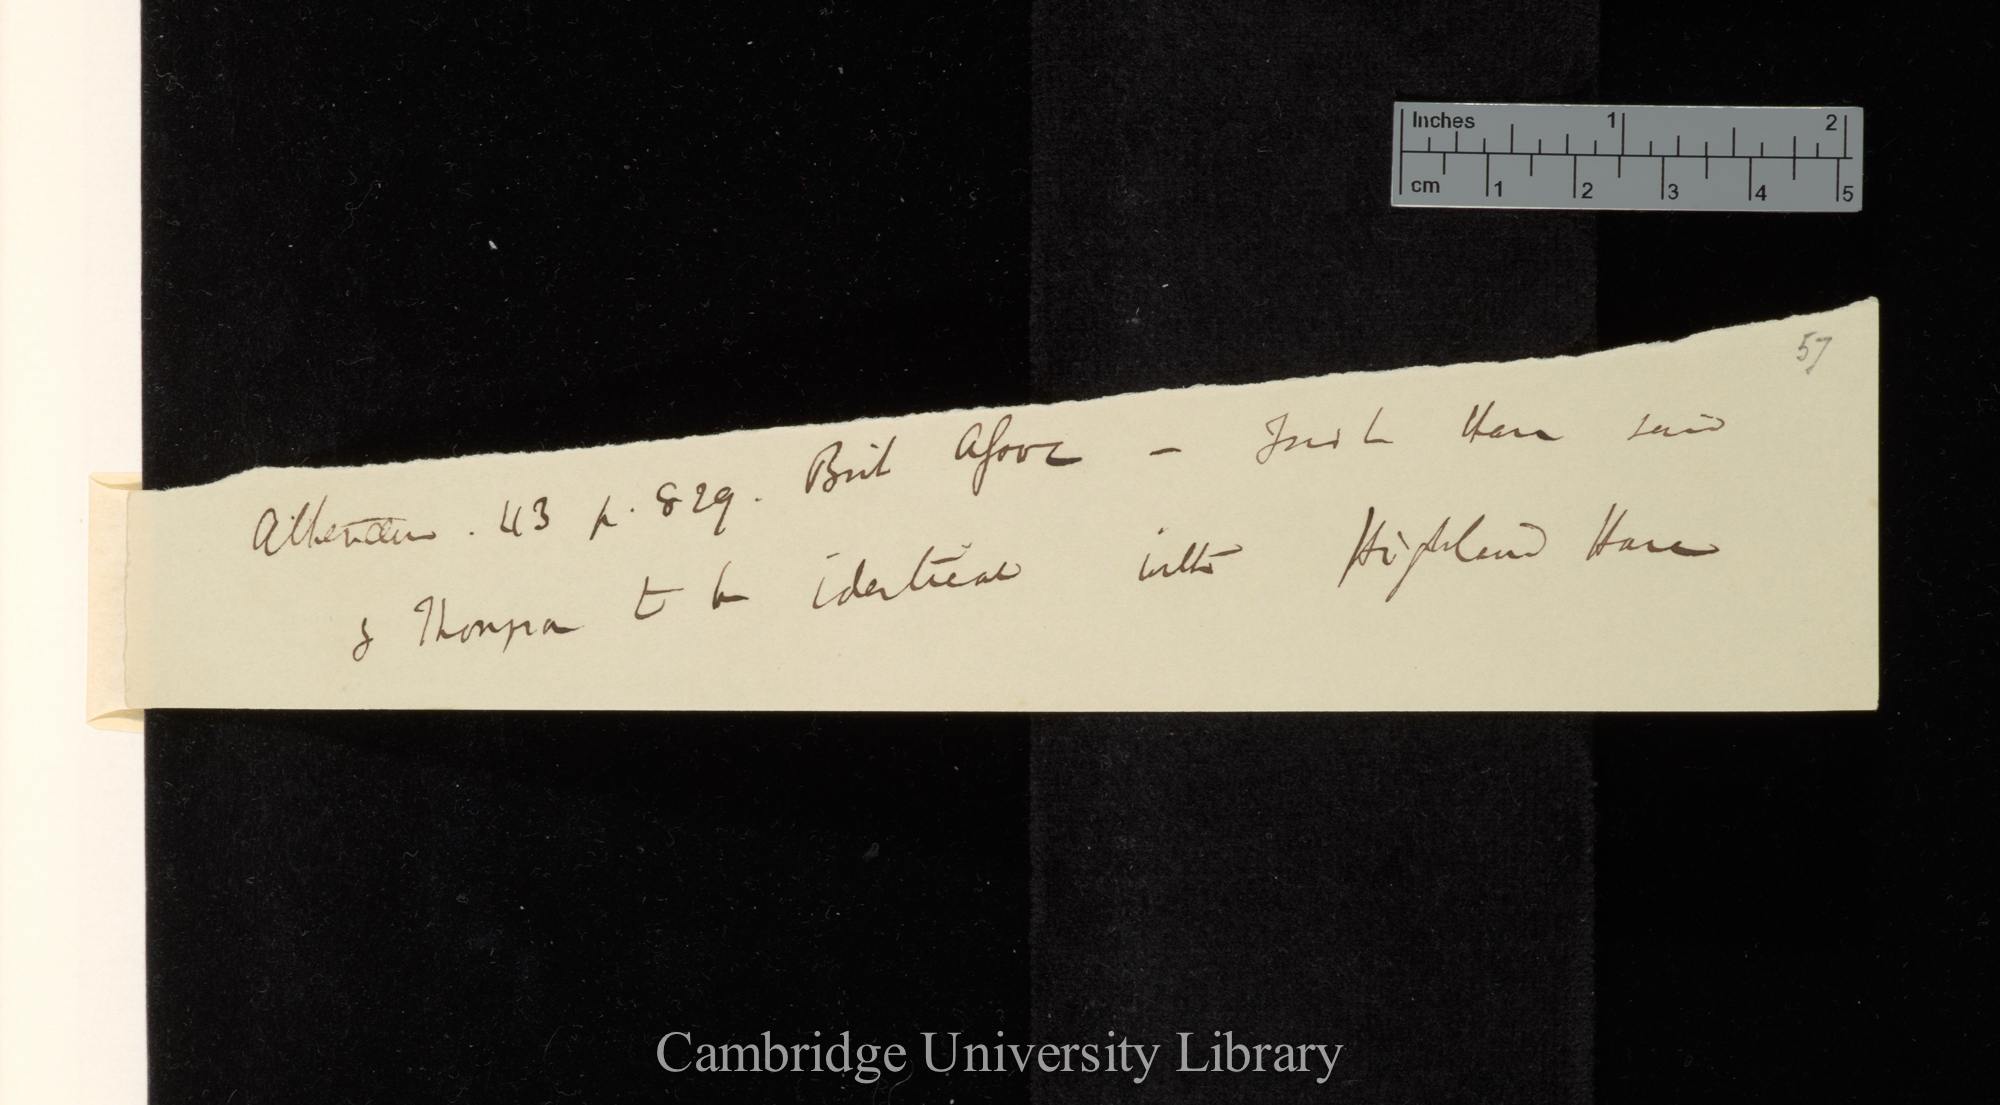 57
Athenæum . 43 p. 829. Brit Assoc — Irish Hare said
by Thompson to be identical with Highland Hare
Inches 1 2
cm 1 2 3 4 5
Cambridge University Library